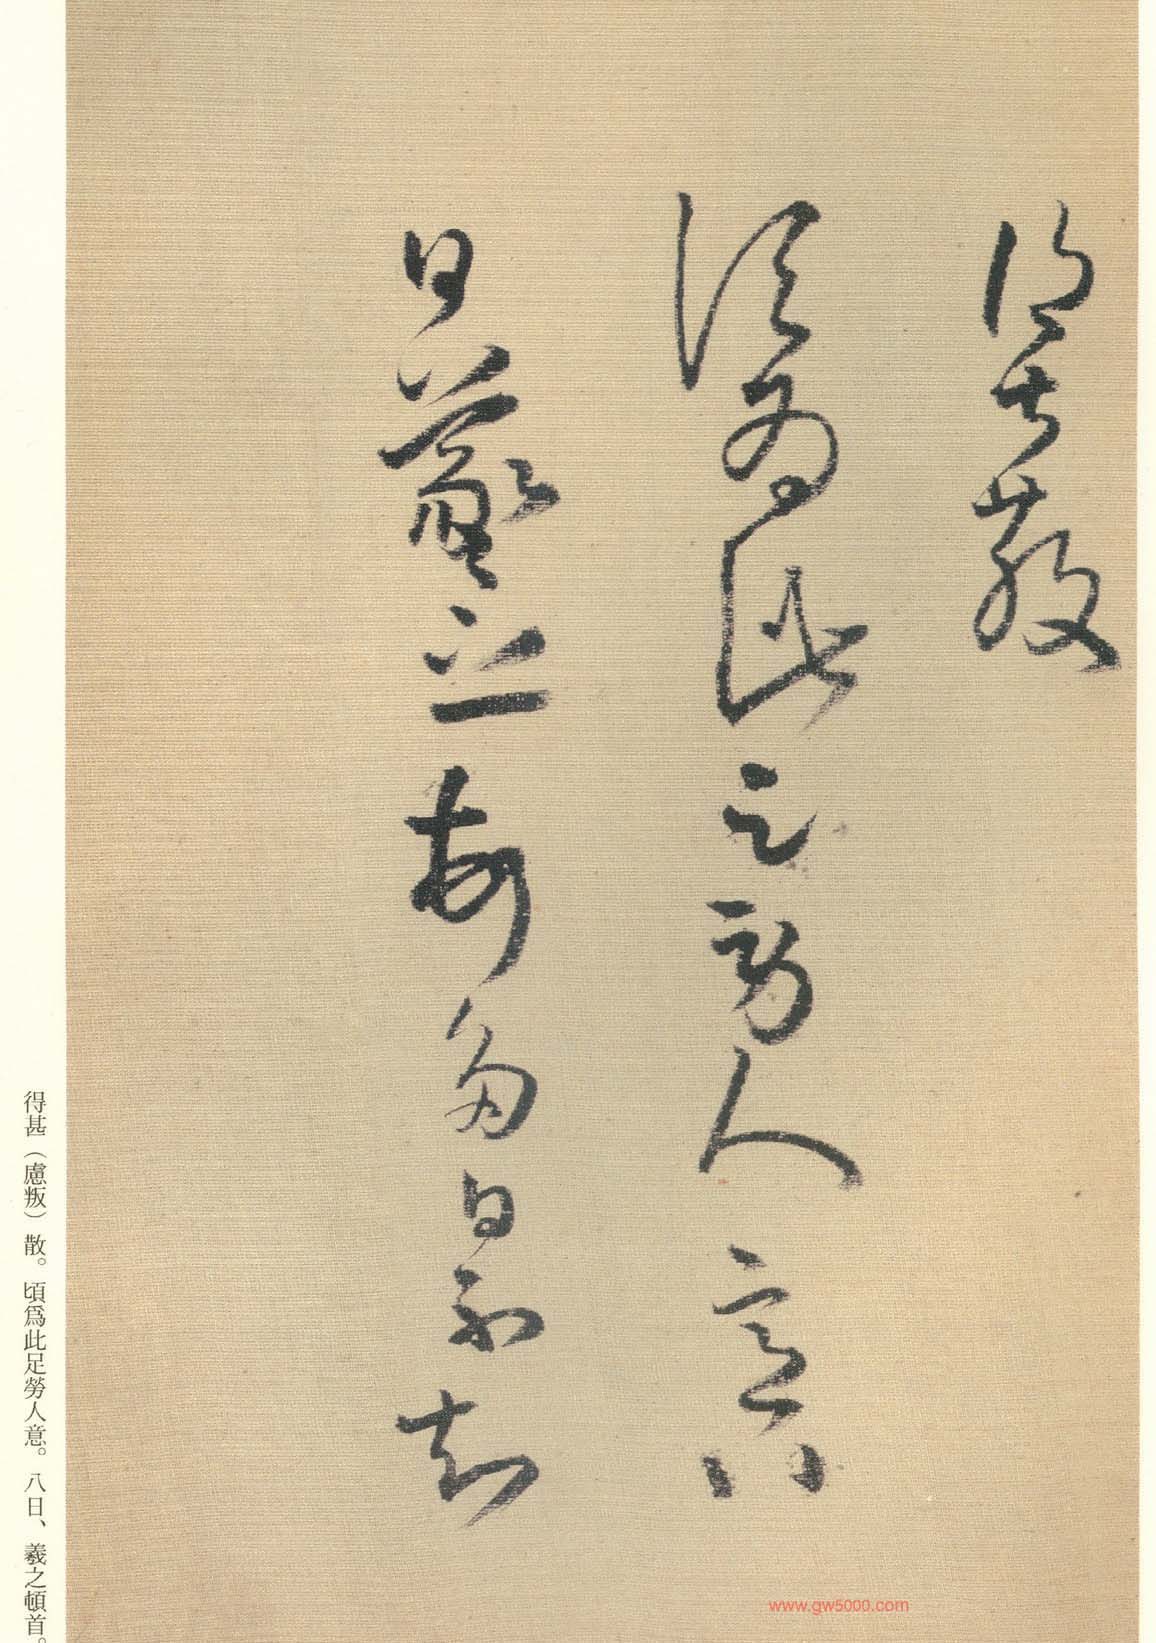 得甚散
頃為此足勞人意八
日羲之多日不知
得甚（慮叛）散。頃爲此足勞人意。八日、羲之頓首。
www.gw5000.com